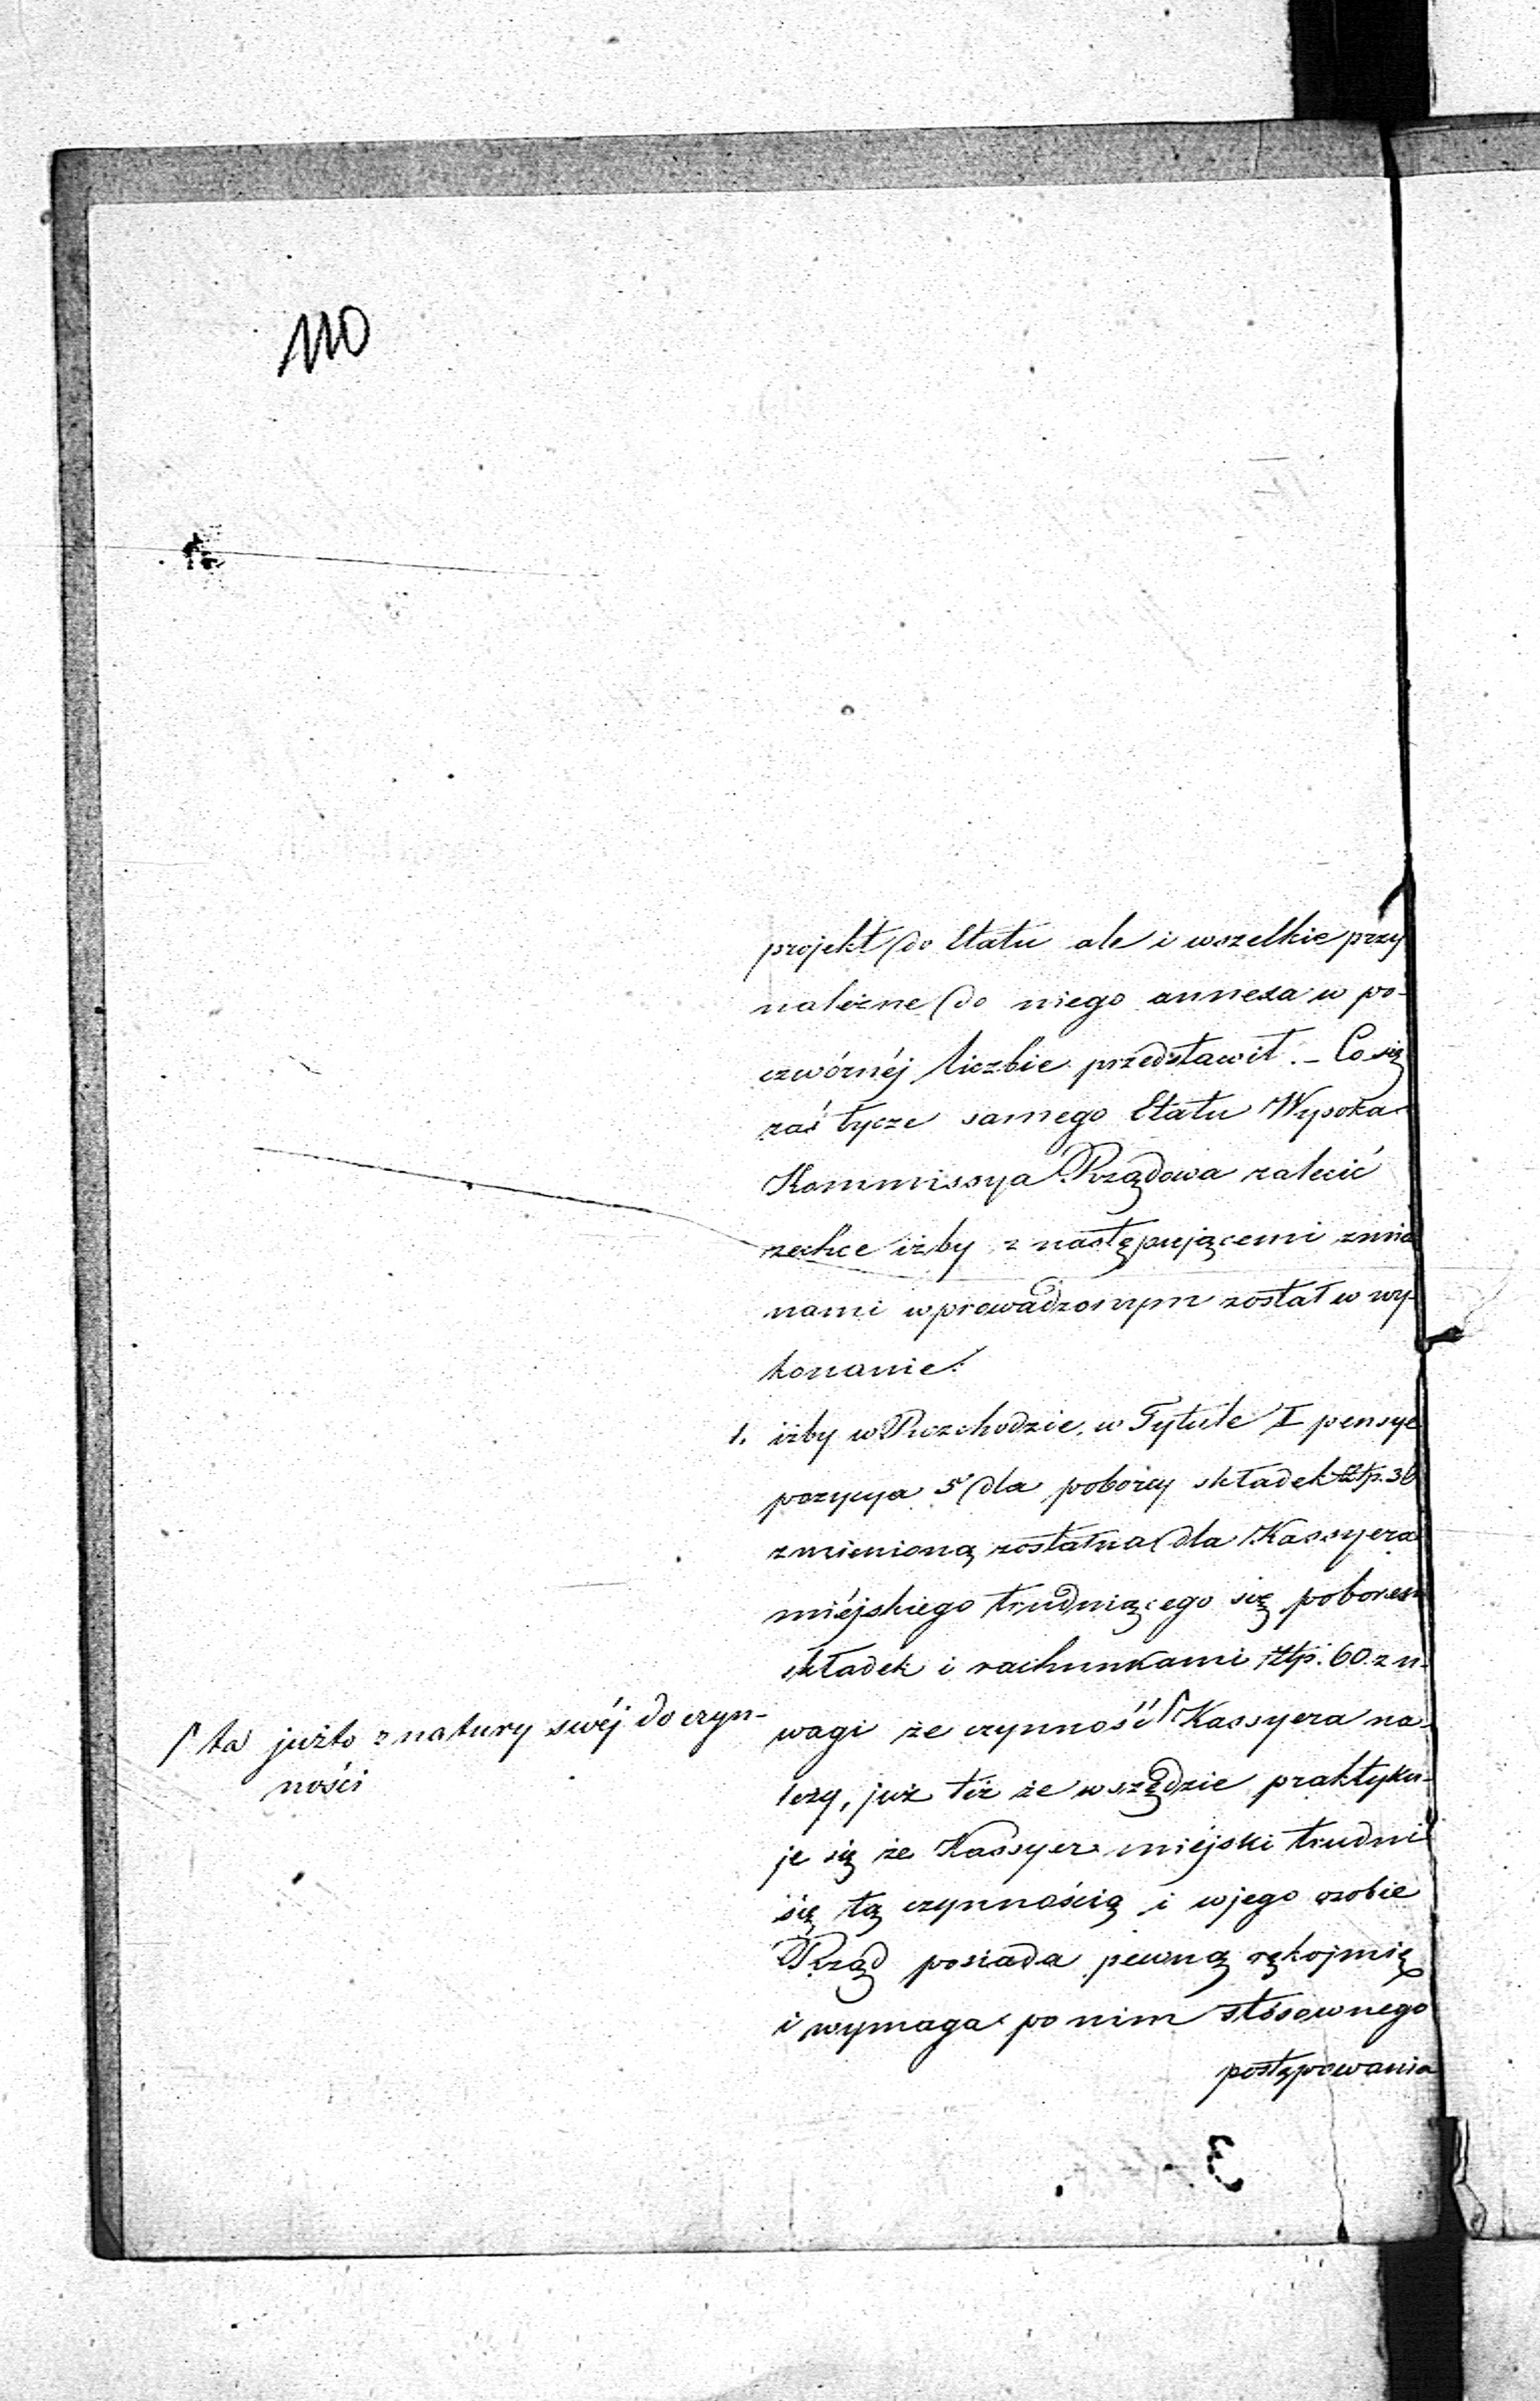 110
projekt do Etatu ale i wszelkie przy
należne do niego annexa w po-
czwórnéj liczbie przedstawił. – Co się
zaś tycze samego Etatu Wysoka
Kommissya Rządowa zalecić
zechce iżby z następującemi zmia
nami wprowadzonym został w wy-
konanie.
1. iżby w Rozchodzie, w Tytule I pensye
pozycya 5 dla poborcy składek złp. 36
zmienioną została na dla Kassyera
miéjskiego trudniącego się poborem
składek i rachunkami złp. 60. z u-
wagi że czynność ſ Kassyera na-
leży, już też że wszędzie praktyku-
je się że Kassyer miéjski trudni
się tą czynnością i w jego osobie
Rząd posiada pewną rękojmię
i wymaga po nim stósownego
postępowania
ſ ta już to z natury swéj do czyn-
ności